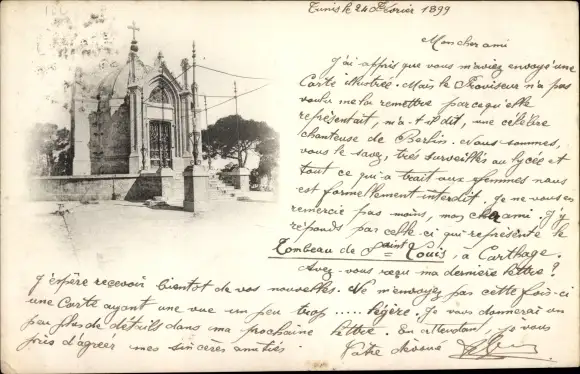 Tunis le 24 Février 1899
Mon cher ami
J'ai appris que vous m'aviez envoyé une
Carte illustrée. Mais le Proviseur n'a pas
voulu me la remettre parce qu'elle
représentait, m'a-t-il dit, une célèbre
chanteuse de Berlin. Nous sommes,
vous le savez, très surveillés au lycée et
tout ce qui a trait aux femmes nous
est formellement interdit. Je ne vous en
remercie pas moins, mon cher ami. J'y
réponds par celle-ci qui représente le
Tombeau de Saint Louis, à Carthage.
Avez-vous reçu ma dernière lettre?
J'espère recevoir bientôt de vos nouvelles. Ne m'envoyez pas cette fois-ci
une Carte ayant une vue un peu trop ..... légère. Je vous donnerai un
peu plus de détails dans ma prochaine lettre. En attendant, je vous
prie d'agréer mes sincères amitiés
Votre dévoué